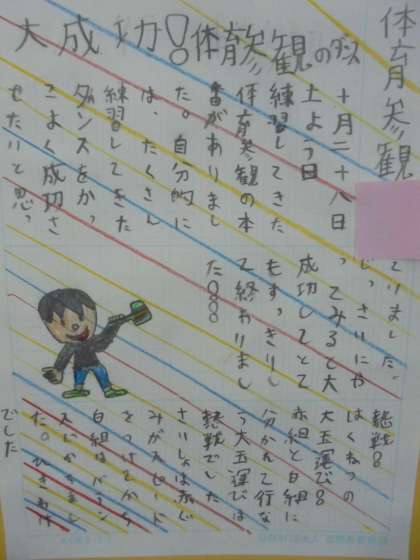 体育参観
大成功!体育参観のダンス
十月二十八日
土よう日
練習してきた
体育参観の本
番がありまし
た。自分的に
は、たくさん
練習してきた
ダンスをかっ
こよく成功さ
せたいと思っ
ていました。
じっさいにや
ってみると大
成功してとて
もすっきりし
て終わりまし
た!!
熱戦!!
はくねつの
大玉運び!!
赤組と白組に
分かれて行な
う大玉運びは
熱戦でした
さいしょは赤ぐ
みがスピード
をつけてから
白組はバトン
た。ひきわけ
でした